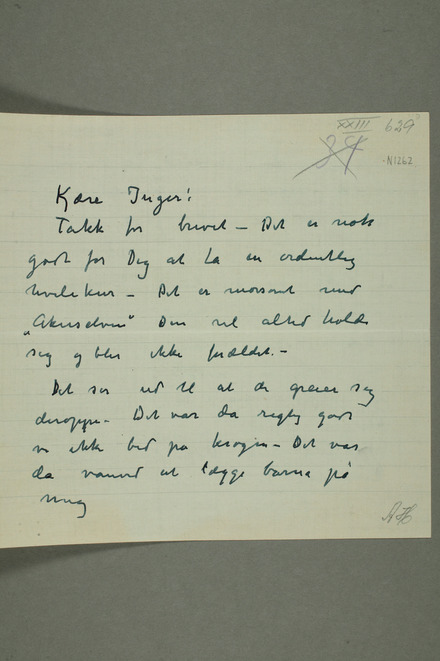 XXIII 629
N1262
Kjære Inger!
Takk for brevet – Det er nok
godt for Dig at ta en ordentlig
hvilekur – Det er morsomt med
„Akerselven" Den vil altid holde
sig og blir ikke forældet. –
Det ser ud til at de greier sig
deroppe – Det var da rigtig godt
vi ikke bed på krogen – Det var
da vanvid at lægge barna på
mug